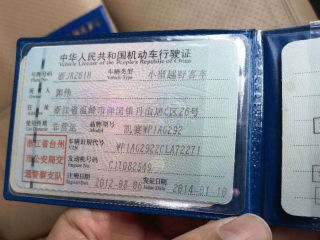 中华人民共和国机动车行驶证
Vehicle License of the People's Republic of China
号牌号码 浙JA2618 车辆类型 小型越野客车
Plate No. Vehicle Type
所有人 郭伟
Owner
住址 浙江省温岭市泽国镇丹山路C区26号
Address
使用性质 非营运 品牌型号 凯宴WP1AG292
Use Character Model
浙江省台州
市公安局交
通警察支队
车辆识别代号 WP1AG2922CLA72271
VIN
发动机号码 CJT082549
Engine No.
注册日期 2012-08-06 发证日期 2014-01-10
Register Date Issue Date